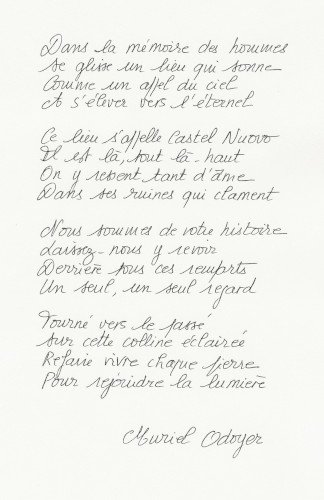 Dans la mémoire des hommes
se glisse un lieu qui sonne
Comme un appel du ciel
A s'élever vers l'éternel
Ce lieu s'appelle Castel Nuovo
Il est là, tout là-haut
On y ressent tant d'âme
Dans ses ruines qui clament
Nous sommes de votre histoire
Laissez-nous y revoir
Derrière tous ces remparts
Un seul, un seul regard
Tourné vers le passé
sur cette colline éclairée
Refaire vivre chaque pierre
Pour rejoindre la lumière
Muriel Odoyer